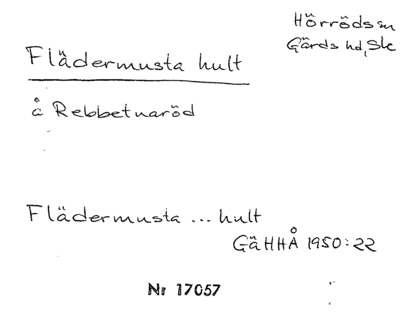 Hörröds sn
Gärds hd, Sk
Flädermusta hult
å Rebbetuaröd
Flädermusta ... hult
GäHHÅ 1950:22
Nr 17057